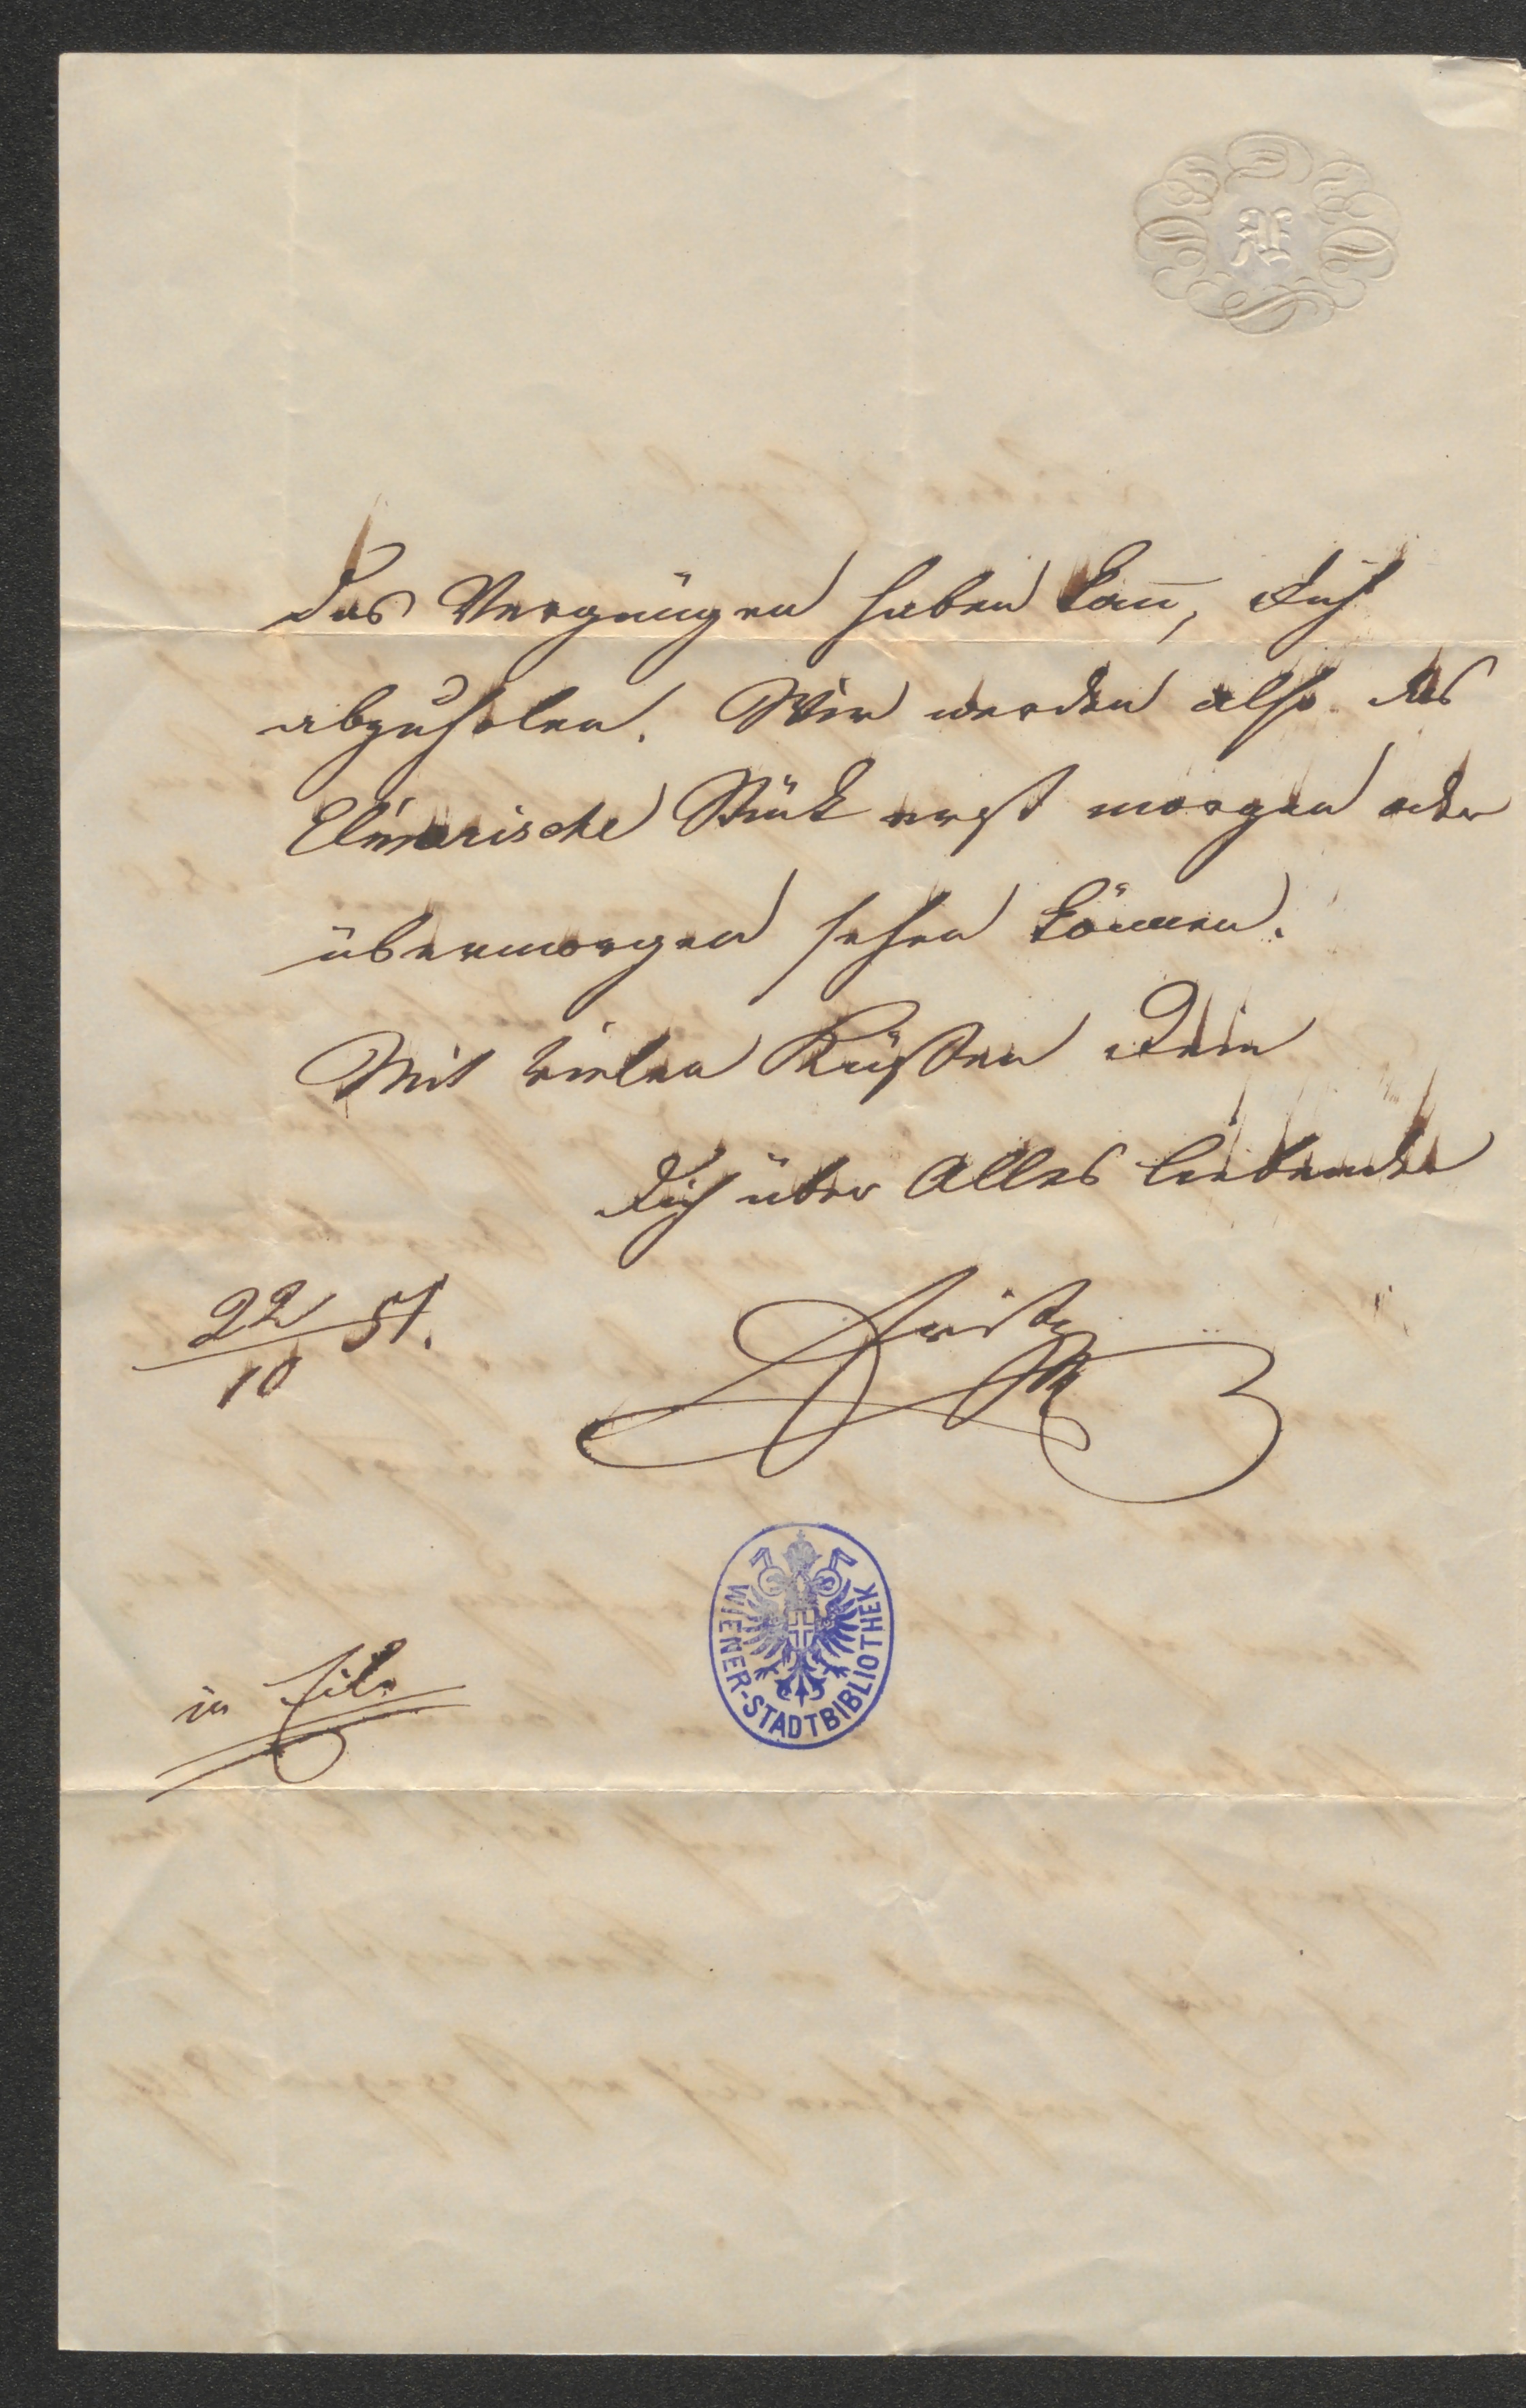 das Vergnügen haben kan̄, Dich
abzuholen. Wir werden also das
Elmarische Stück erst morgen oder
übermorgen sehen können.
Mit vielen Küßen Dein
Dich über Alles liebender
Fritz
22/10 51.
in Eile
WIENER-STADTBIBLIOTHEK